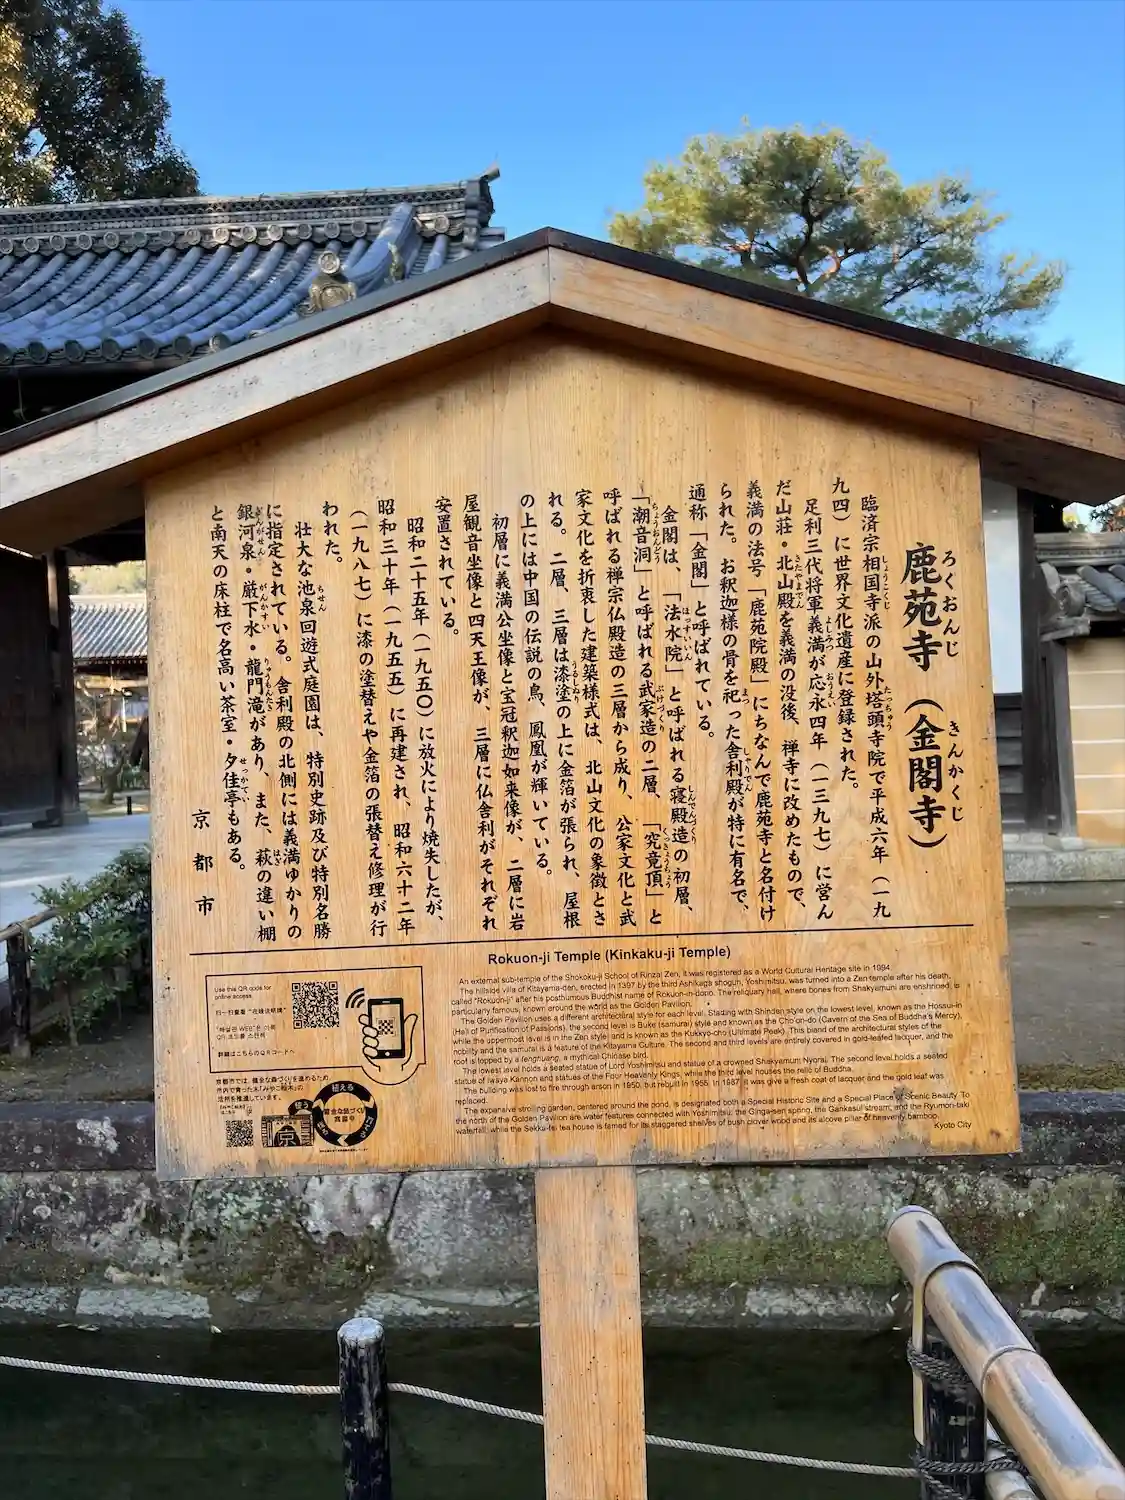 鹿苑寺（金閣寺）
ろくおんじ
きんかくじ
臨済宗相国寺派の山外塔頭寺院で平成六年（一九
九四）に世界文化遺産に登録された。
足利三代将軍義満が応永四年（一三九七）に営ん
だ山荘・北山殿を義満の没後、禅寺に改めたもので、
義満の法号「鹿苑院殿」にちなんで鹿苑寺と名付け
られた。お釈迦様の骨を祀った舎利殿が特に有名で、
通称「金閣」と呼ばれている。
金閣は、「法水院」と呼ばれる寝殿造の初層、
「潮音洞」と呼ばれる武家造の二層、「究竟頂」と
呼ばれる禅宗仏殿造の三層から成り、公家文化と武
家文化を折衷した建築様式は、北山文化の象徴とさ
れる。二層、三層は漆塗の上に金箔が張られ、屋根
の上には中国の伝説の鳥、鳳凰が輝いている。
初層に義満公坐像と宝冠釈迦如来像が、二層に岩
屋観音坐像と四天王像が、三層に仏舎利がそれぞれ
安置されている。
昭和二十五年（一九五〇）に放火により焼失したが、
昭和三十年（一九五五）に再建され、昭和六十二年
（一九八七）に漆の塗替えや金箔の張替え修理が行
われた。
壮大な池泉回遊式庭園は、特別史跡及び特別名勝
に指定されている。舎利殿の北側には義満ゆかりの
銀河泉・厳下水・龍門滝があり、また、萩の違い棚
と南天の床柱で名高い茶室・夕佳亭もある。
京都市
Rokuon-ji Temple (Kinkaku-ji Temple)
An external sub-temple of the Shokoku-ji School of Rinzai Zen, it was registered as a World Cultural Heritage site in 1994.
The hillside villa of Kitayama-den, erected in 1397 by the third Ashikaga shogun, Yoshimitsu, was turned into a Zen temple after his death,
called "Rokuon-ji" after his posthumous Buddhist name of Rokuon-in-dono. The reliquary hall, where bones from Shakyamuni are enshrined, is
particularly famous, known around the world as the Golden Pavilion.
The Golden Pavilion uses a different architectural style for each level. Starting with Shinden style on the lowest level, known as the Hossui-in
(Hall of Purification of Passions), the second level is Buke (samurai) style and known as the Cho-on-do (Cavern of the Sea of Buddha's Mercy),
while the uppermost level is in the Zen style and is known as the Kukkyo-cho (Ultimate Peak). This blend of the architectural styles of the
nobility and the samurai is a feature of the Kitayama Culture. The second and third levels are entirely covered in gold-leafed lacquer, and the
roof is topped by a fenghuang, a mythical Chinese bird.
The lowest level holds a seated statue of Lord Yoshimitsu and statue of a crowned Shakyamuni Nyorai. The second level holds a seated
statue of Iwaya Kannon and statues of the Four Heavenly Kings, while the third level houses the relic of Buddha.
The building was lost to fire through arson in 1950, but rebuilt in 1955. In 1987, it was give a fresh coat of lacquer and the gold leaf was
replaced.
The expansive strolling garden, centered around the pond, is designated both a Special Historic Site and a Special Place of Scenic Beauty. To
the north of the Golden Pavilion are water features connected with Yoshimitsu: the Ginga-sen spring, the Gankasui stream, and the Ryumon-taki
waterfall, while the Sekka-tei tea house is famed for its staggered shelves of bush clover wood and its alcove pillar of heavenly bamboo.
Kyoto City
Use this QR code for
online access.
扫一扫查看 "在线说明牌"
詳細はこちらのQRコードへ
京都市では、健全な森づくりを進めるため
市内で育った木「みやこ杣木」の
活用を推進しています。
植える
育てる
使う
健全な森づくり
実習中
京